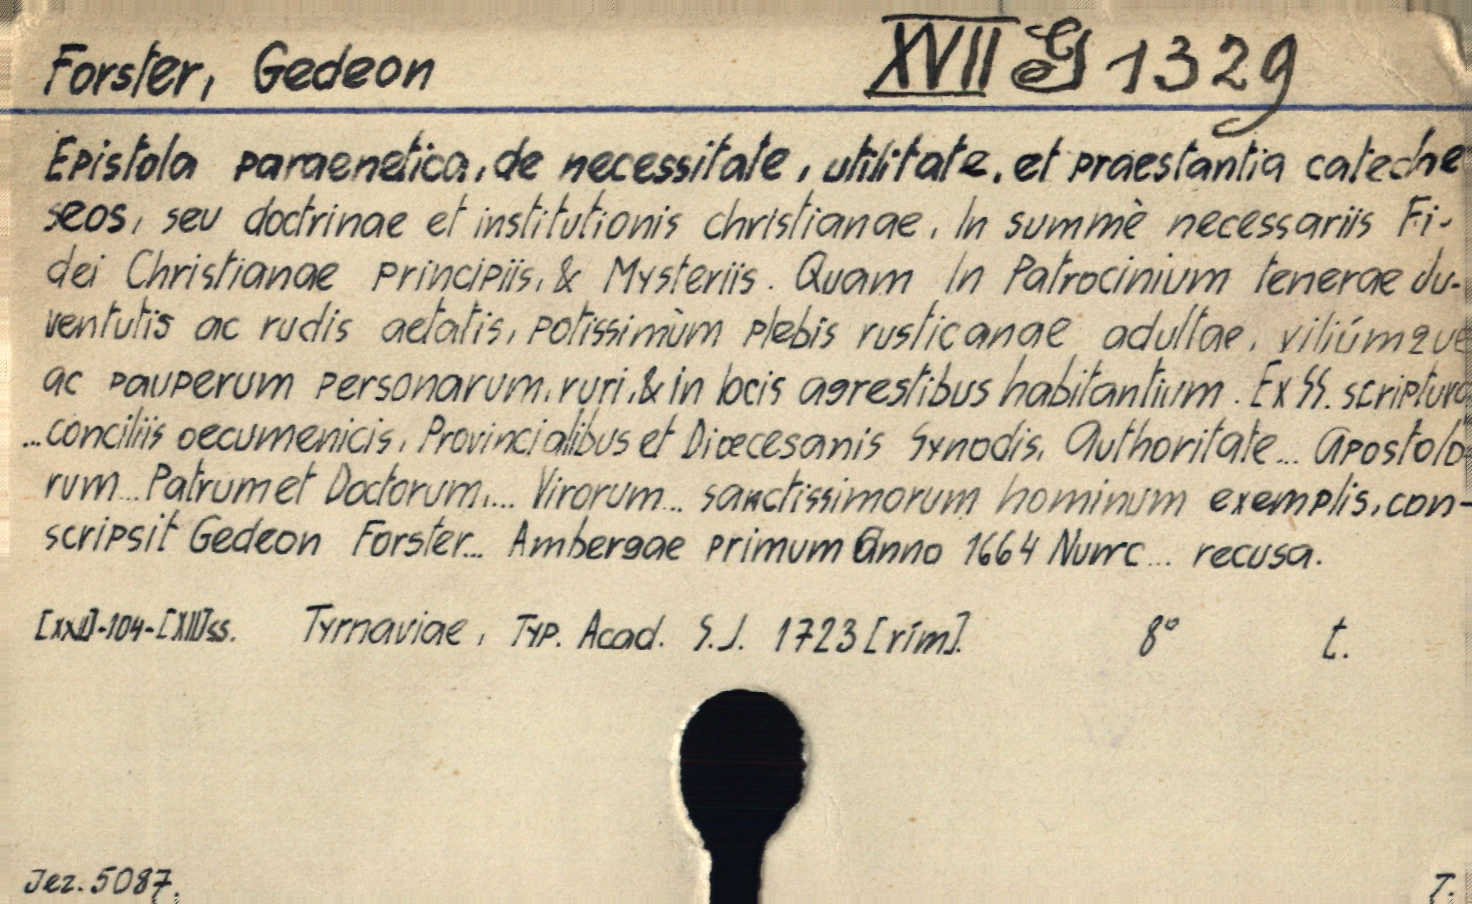 Forster, Gedeon XVII G 1329
Epistola paraenetica, de necessitate, utilitate, et praestantia cateche
seos, seu doctrinae et institutionis christianae, In summè necessariis Fi-
dei Christianae Principiis, & Mysteriis. Quam In Patrocinium tenerae Ju-
ventutis ac rudis aetatis, potissimùm plebis rusticanae adultae, viliúmque
ac pauperum personarum, ruri, & in locis agrestibus habitantium. Ex SS. scriptura
...conciliis oecumenicis, Provincialibus et Dioecesanis Synodis, Authoritate... Apostolo
rum... Patrum et Doctorum,... Virorum... sanctissimorum hominum exemplis, con-
scripsit Gedeon Forster... Ambergae primum Anno 1664 Nunc... recusa.
[XXII]-104-[XII]ss. Tyrnaviae, Typ. Acad. S.J. 1723 [rím]. 8° t.
Jez. 5087. T.